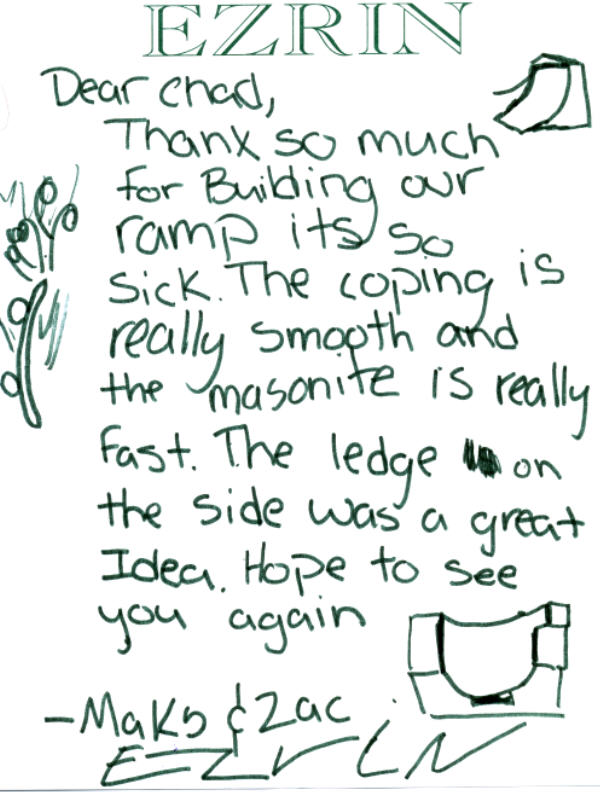 EZRIN
Dear Chad,
Thanx so much
for Building our
ramp its so
sick. The coping is
really smooth and
the masonite is really
fast. The ledge on
the side was a great
Idea. Hope to see
you again
-Maks & Zac
EZRIN